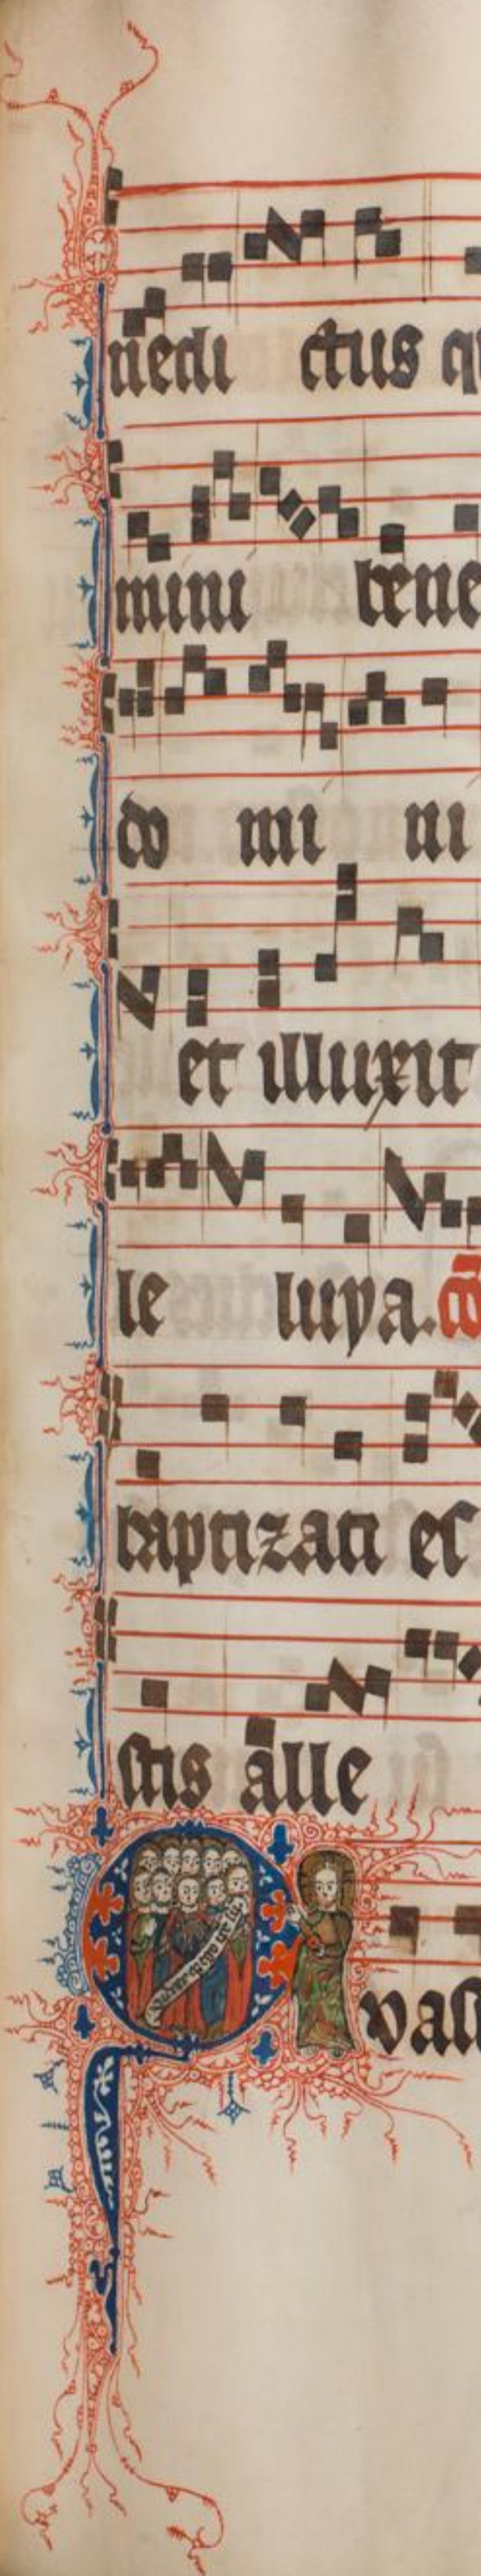 nedi ctus q
mini bene
do mi ni
et illuxit
le luya. co
baptizati es
stis alle
Q vasi